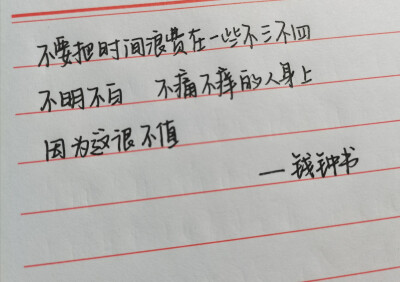 不要把时间浪费在一些不三不四
不明不白 不痛不痒的人身上
因为这很不值
—钱钟书